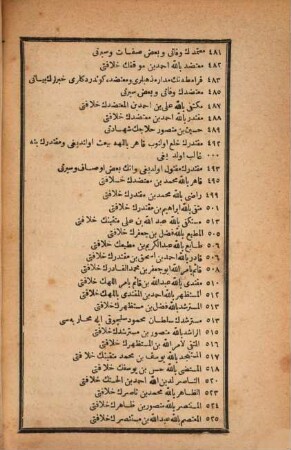 ٤٨١ معتمدك وفاتى وبعض صفات وسيرتى
٤٨٢ معتضد بالله احمد بن موفقك خلافتى
٤٨٣ قرامطه نك مدار مذهبلرى ومعتضده كوندردكلرى خبرك بيانى
٤٨٥ معتضدك وفاتى وبعض سيرى
٤٨٧ مكتفى بالله على بن احمد بن المعتضدك خلافتى
٤٨٨ مقتدر بالله احمد بن معتضدك خلافتى
٤٩١ حسين بن منصور حلاجك شهادتى
٤٩٢ مقتدرك خلع اولنوب قاهر بالله بيعت اولنديغى ومقتدرك ينه
٠٠٠ غالب اولديغى
٤٩٣ مقتدرك مقتول اولديغى وانك بعض اوصاف وسيرى
٤٩٥ قاهر بالله محمد بن معتضدك خلافتى
٤٩٩ راضى بالله محمد بن مقتدرك خلافتى
متقى بالله ابراهيم بن مقتدرك خلافتى
٥٠٣ مستكفى بالله عبد الله بن على متقينك خلافتى
٥٠٥ المطيع بالله فضل بن جعفرك خلافتى
٥٠٦ طايع بالله عبد الكريم بن مطيعك خلافتى
٥٠٧ قادر بالله احمد بن اسحق بن مقتدرك خلافتى
٥٠٨ قائم بامر الله ابو جعفر بن محمد القادرك خلافتى
٥١٠ مقتدى بالله عبد الله بن قائم بامر اللهك خلافتى
٥١٢ المستظهر بالله احمد بن المقتدى باللهك خلافتى
٥١٢ المسترشد بالله فضل بن مستظهرك خلافتى
٥١٣ مسترشدك سلطان محمود سلجوقى ايله محاربه سى
٥١٥ الراشد بالله منصور بن مسترشدك خلافتى
٥١٦ المقتفى لامر الله بن المستظهرك خلافتى
٥١٧ المستنجد بالله يوسف بن محمد مقتفينك خلافتى
المستضى بالله حسن بن يوسفك خلافتى
٥٢٠ الناصر لدين الله احمد بن الحسنك خلافتى
٥٢٣ الظاهر بالله محمد بن ناصرك خلافتى
٥٢٤ المستنصر بالله منصور بن ظاهرك خلافتى
٥٢٥ المعتصم بالله عبد الله بن مستنصرك خلافتى